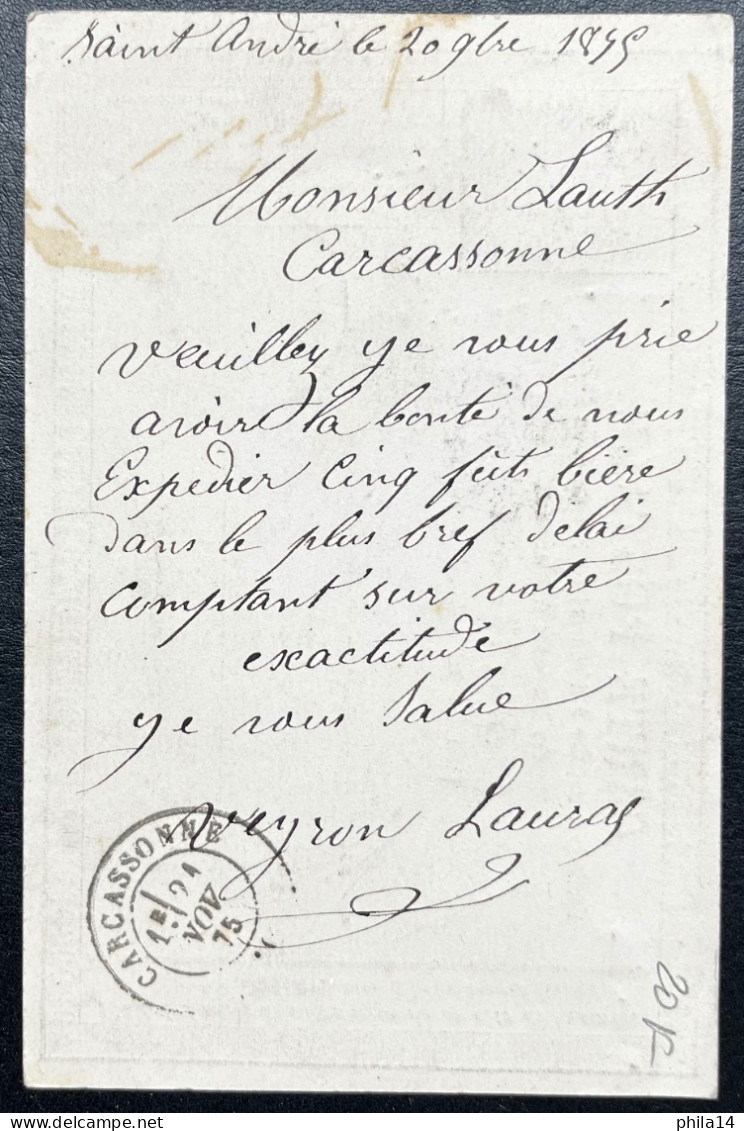 Saint André le 20 9bre 1875
Monsieur Lauth
Carcassonne
Veuillez je vous prie
avoir la bonté de nous
Expedier Cinq fûts bière
dans le plus bref délai
comptant sur votre
exactitude
je vous Salue
Veyron Lauras
CARCASSONNE
1E/ 21
NOV
75
phila14